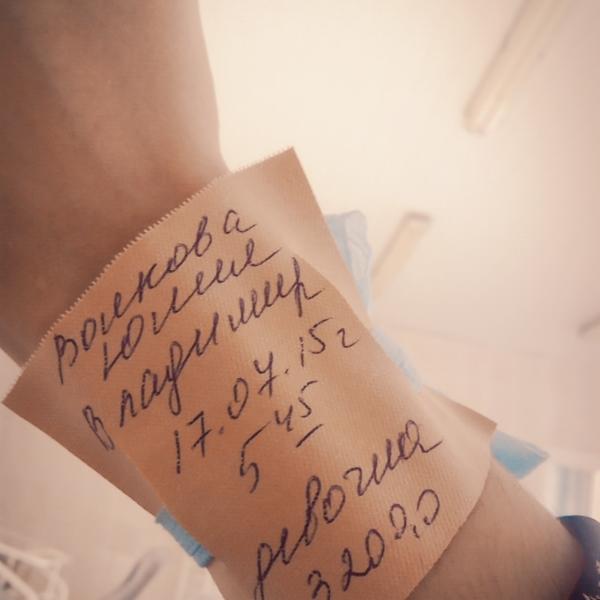 Волкова
Юлия
Владимир
17.07.15г
5 45
девочка
3200,0